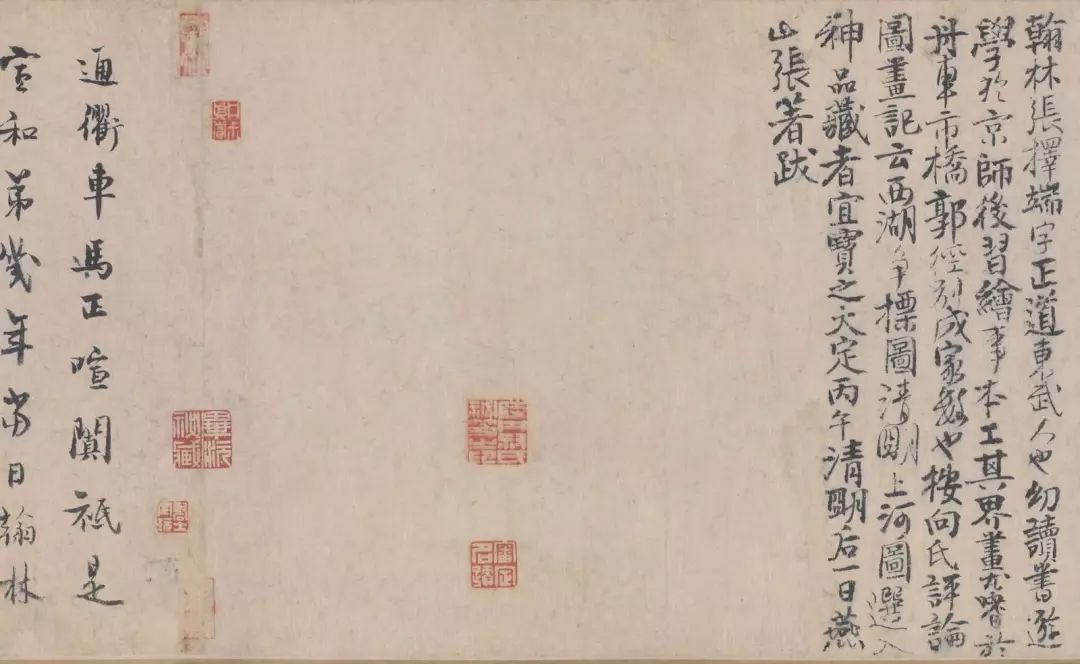 翰林張擇端字正道東武人也幼讀書遊
學於京師後習繪事本工其界畫尤嗜於
舟車市橋郭徑別成家數也按向氏評論
圖畫記云西湖爭標圖清明上河圖選入
神品藏者宜寶之大定丙午清明后一日燕
山張著跋
通衢車馬正喧闐祗是
宣和第幾年當日翰林